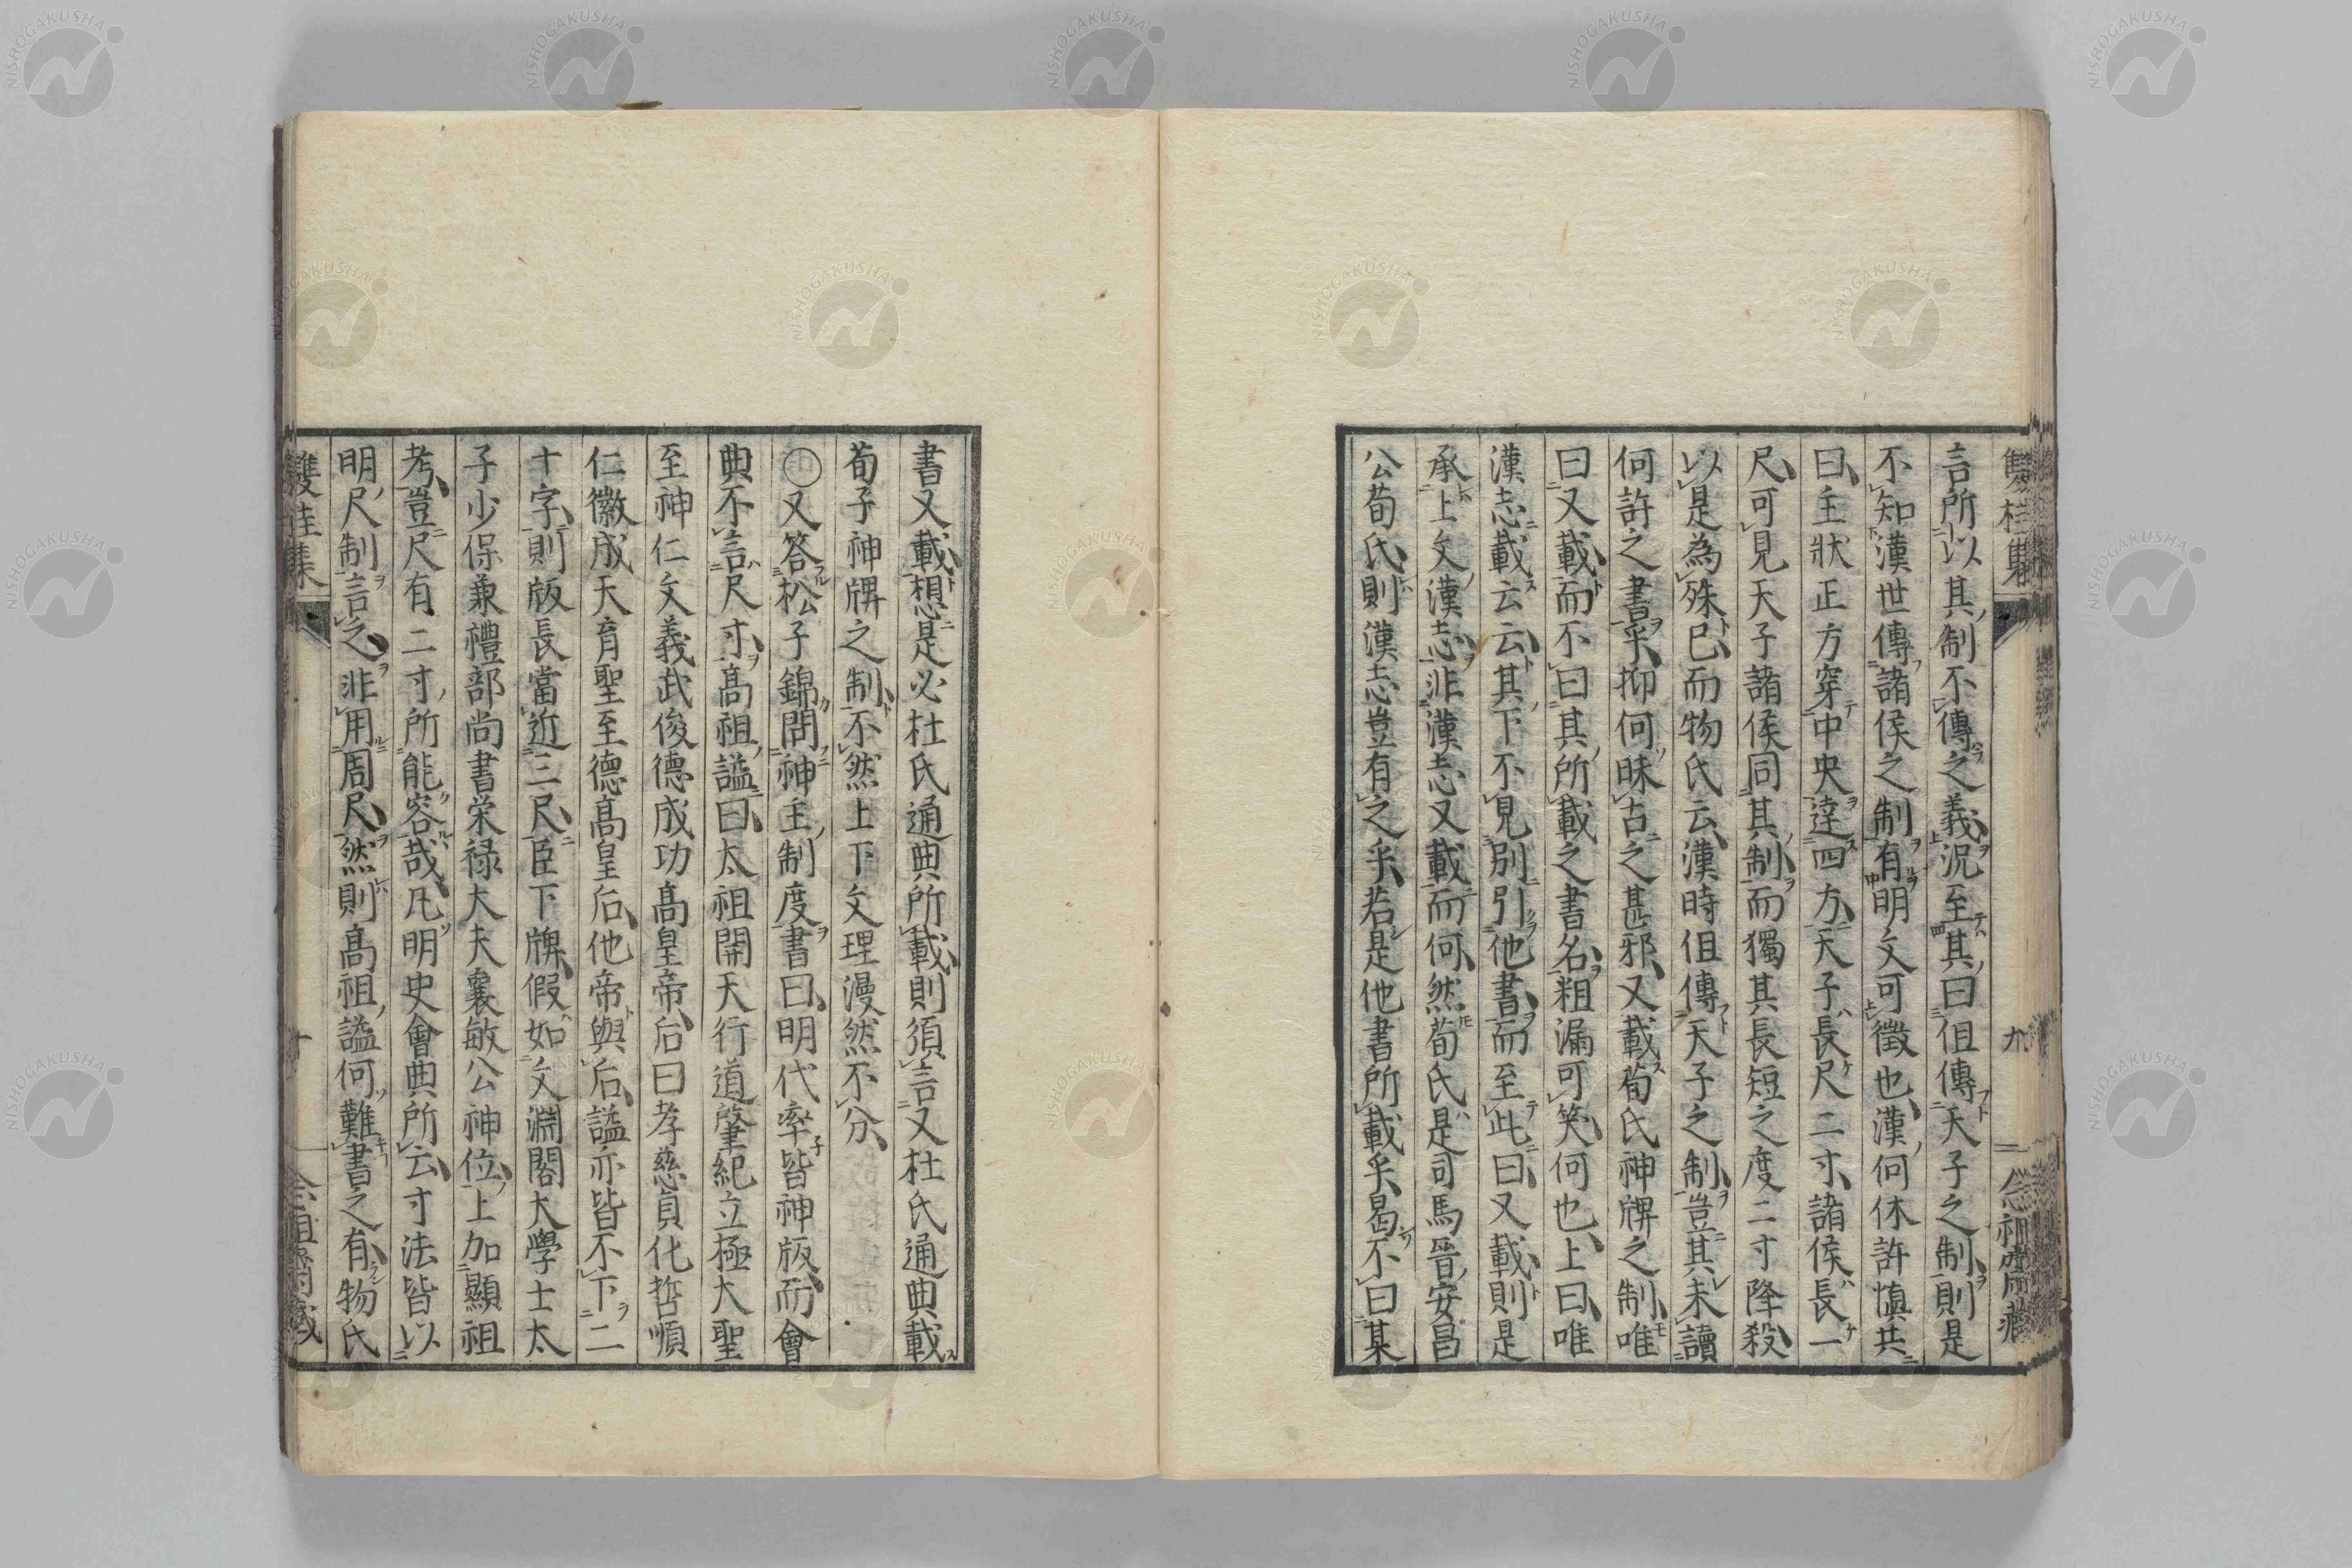 言所以其制不傳之義況至其曰但傳天子之制則是
不知漢世傳諸侯之制有明文可徵也漢何休許慎共
曰主狀正方穿中央達四方天子長尺二寸諸侯長一
尺可見天子諸侯同其制而獨其長短之度二寸降殺
以是為殊已而物氏云漢時但傳天子之制豈其未讀
何許之書乎抑何昧古之甚邪又載荀氏神牌之制唯
曰又載而不曰其所載之書名粗漏可笑何也上曰唯
漢志載云云其下不見別引他書而至此曰又載則是
承上文漢志非漢志又載而何然荀氏是司馬晉安昌
公荀氏則漢志豈有之乎若是他書所載乎曷不曰某
書又載想是必杜氏通典所載則須言又杜氏通典載
荀子神牌之制不然上下文理漫然不分
○又答松子錦問神主制度書曰明代率皆神版而會
典不言尺寸高祖諡曰太祖開天行道肇紀立極大聖
至神仁文義武俊德成功高皇帝后曰孝慈貞化哲順
仁徽成天育聖至德高皇后他帝與后諡亦皆不下二
十字則版長當近三尺臣下牌假如文淵閣大學士太
子少保兼禮部尚書栄禄大夫襄敏公神位上加顯祖
考豈尺有二寸所能容哉凡明史會典所云寸法皆以
明尺制言之非用周尺然則高祖諡何難書之有物氏
雙桂集
十